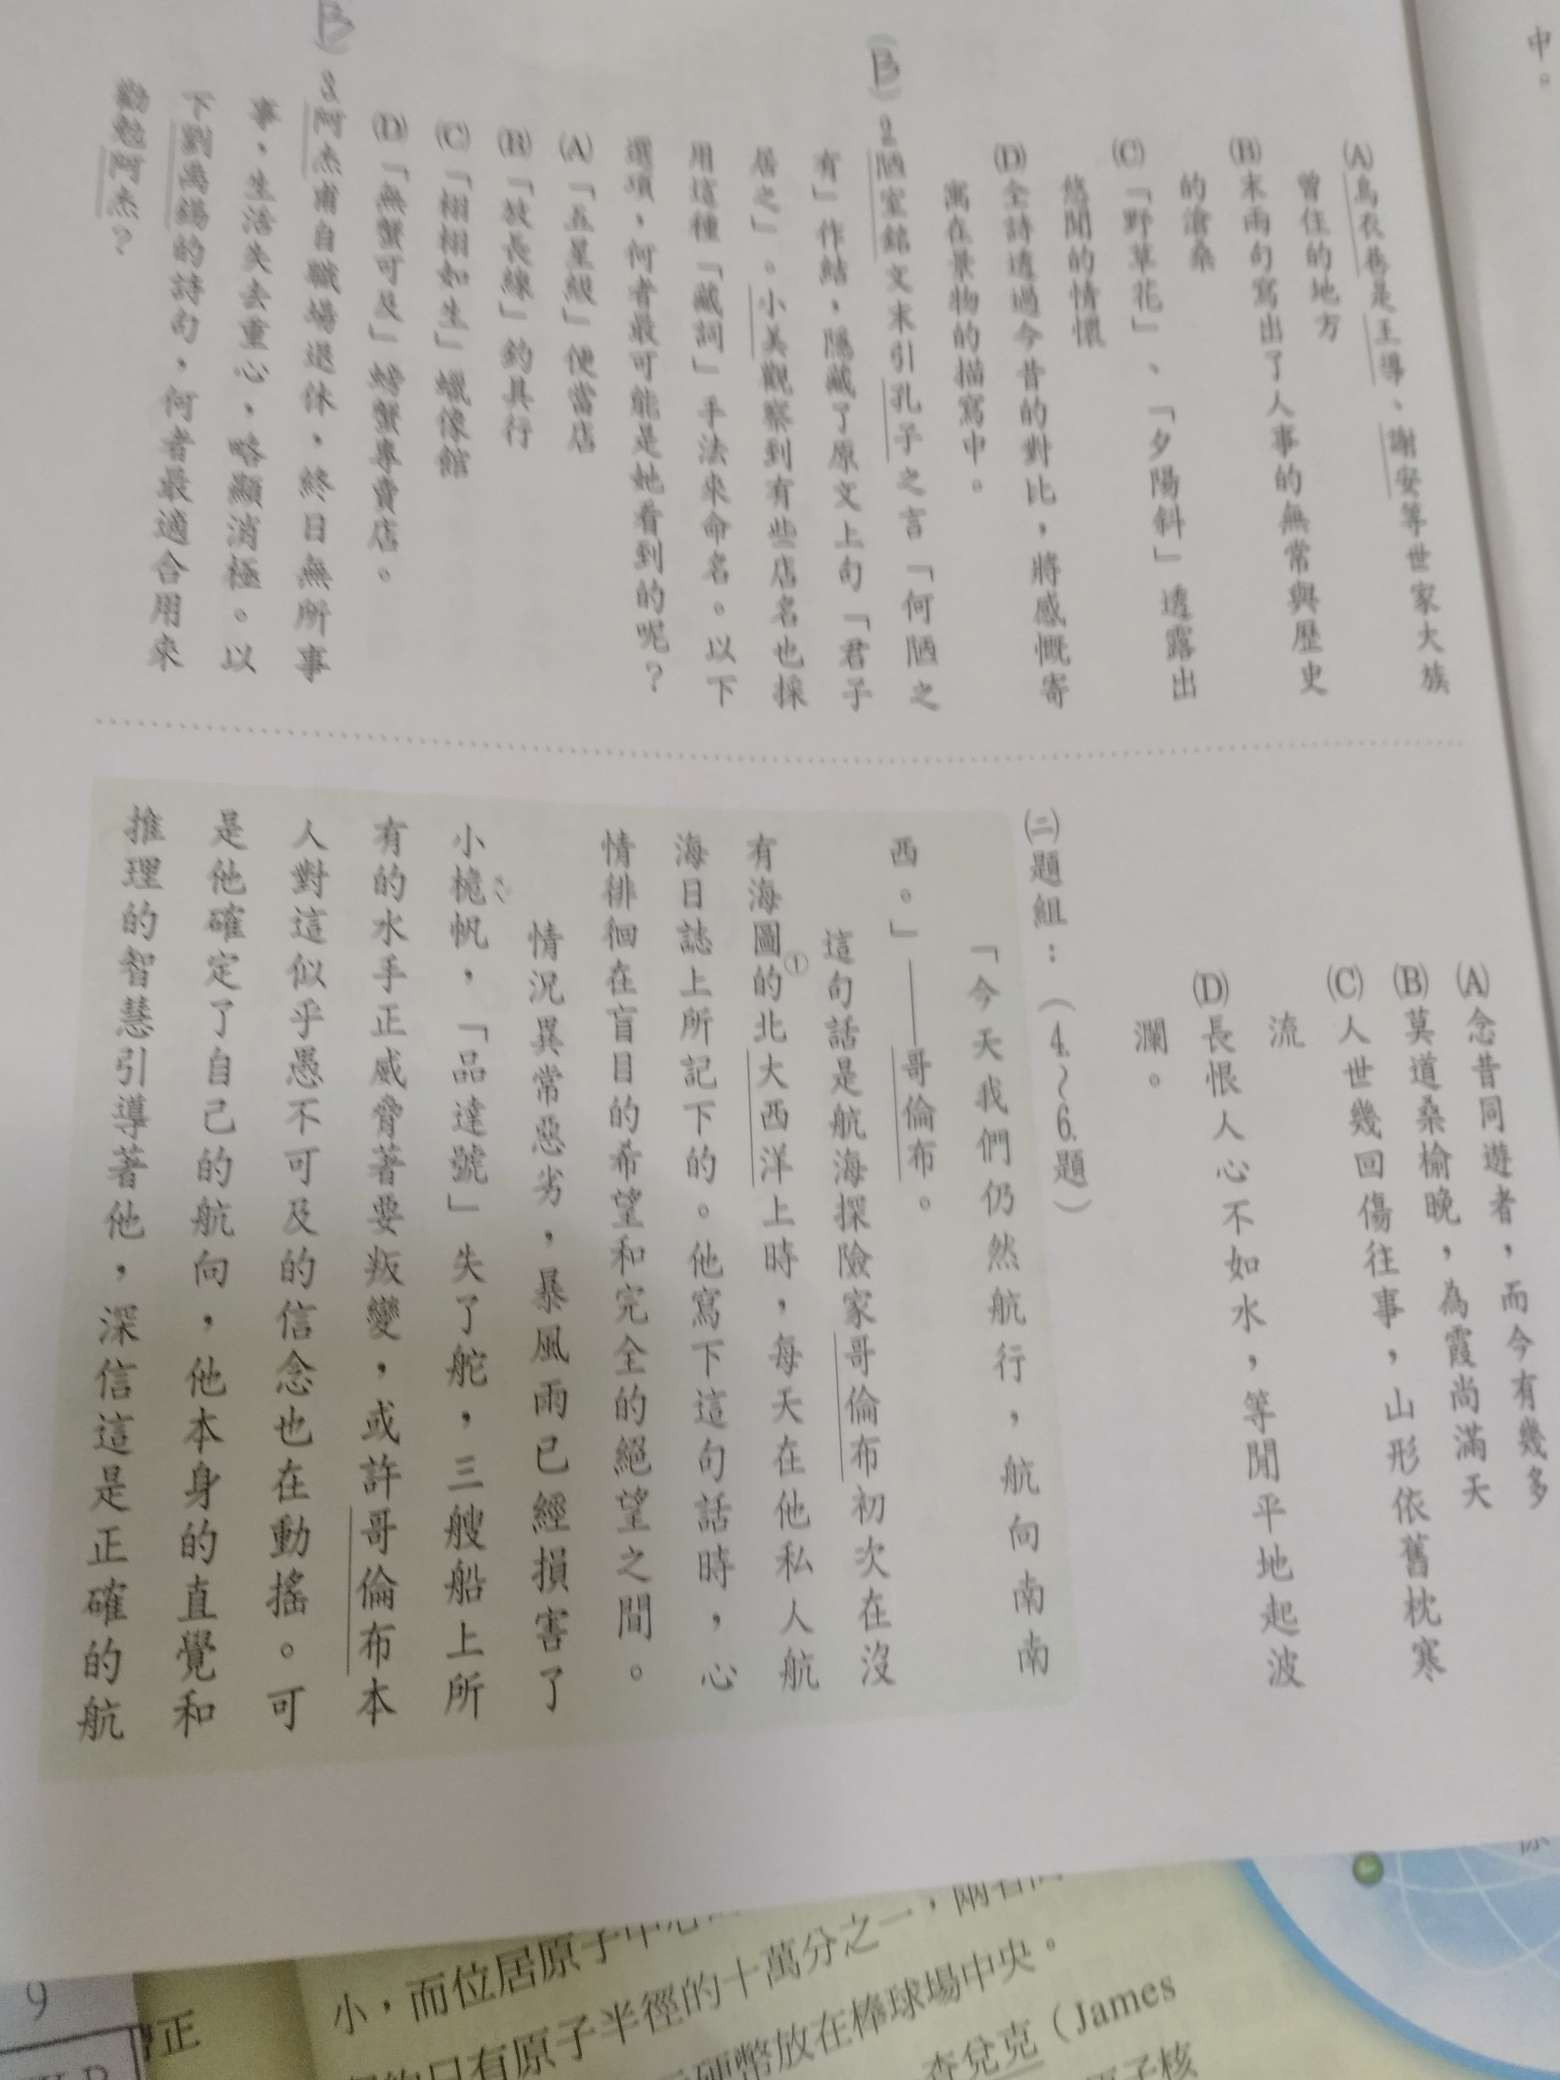 中。
(A)烏衣巷是王導、謝安等世家大族
曾住的地方
(B)末兩句寫出了人事的無常與歷史
的滄桑
(C)「野草花」、「夕陽斜」透露出
悠閒的情懷
(D)全詩透過今昔的對比，將感慨寄
寓在景物的描寫中。
(B)2.陋室銘文末引孔子之言「何陋之
有」作結，隱藏了原文上句「君子
居之」。小美觀察到有些店名也採
用這種「藏詞」手法來命名。以下
選項，何者最可能是她看到的呢？
(A)「五星級」便當店
(B)「放長線」釣具行
(C)「栩栩如生」蠟像館
(D)「無蟹可及」螃蟹專賣店。
(B)3.阿杰甫自職場退休，終日無所事
事，生活失去重心，略顯消極。以
下劉禹錫的詩句，何者最適合用來
勸勉阿杰？
(A)念昔同遊者，而今有幾多
(B)莫道桑榆晚，為霞尚滿天
(C)人世幾回傷往事，山形依舊枕寒
流
(D)長恨人心不如水，等閒平地起波
瀾。
㈡題組：（4.～6.題）
「今天我們仍然航行，航向南南
西。」——哥倫布。
這句話是航海探險家哥倫布初次在沒
有海圖①的北大西洋上時，每天在他私人航
海日誌上所記下的。他寫下這句話時，心
情徘徊在盲目的希望和完全的絕望之間。
情況異常惡劣，暴風雨已經損害了
小桅帆，「品達號」失了舵，三艘船上所
有的水手正威脅著要叛變，或許哥倫布本
人對這似乎愚不可及的信念也在動搖。可
是他確定了自己的航向，他本身的直覺和
推理的智慧引導著他，深信這是正確的航
9
正
小，而位居原子中心
只有原子半徑的十萬分之一，兩者
硬幣放在棒球場中央。
查兌克（James
原子核